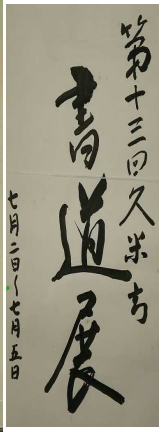 第十三回久米吉
書道展
七月二日〜七月五日